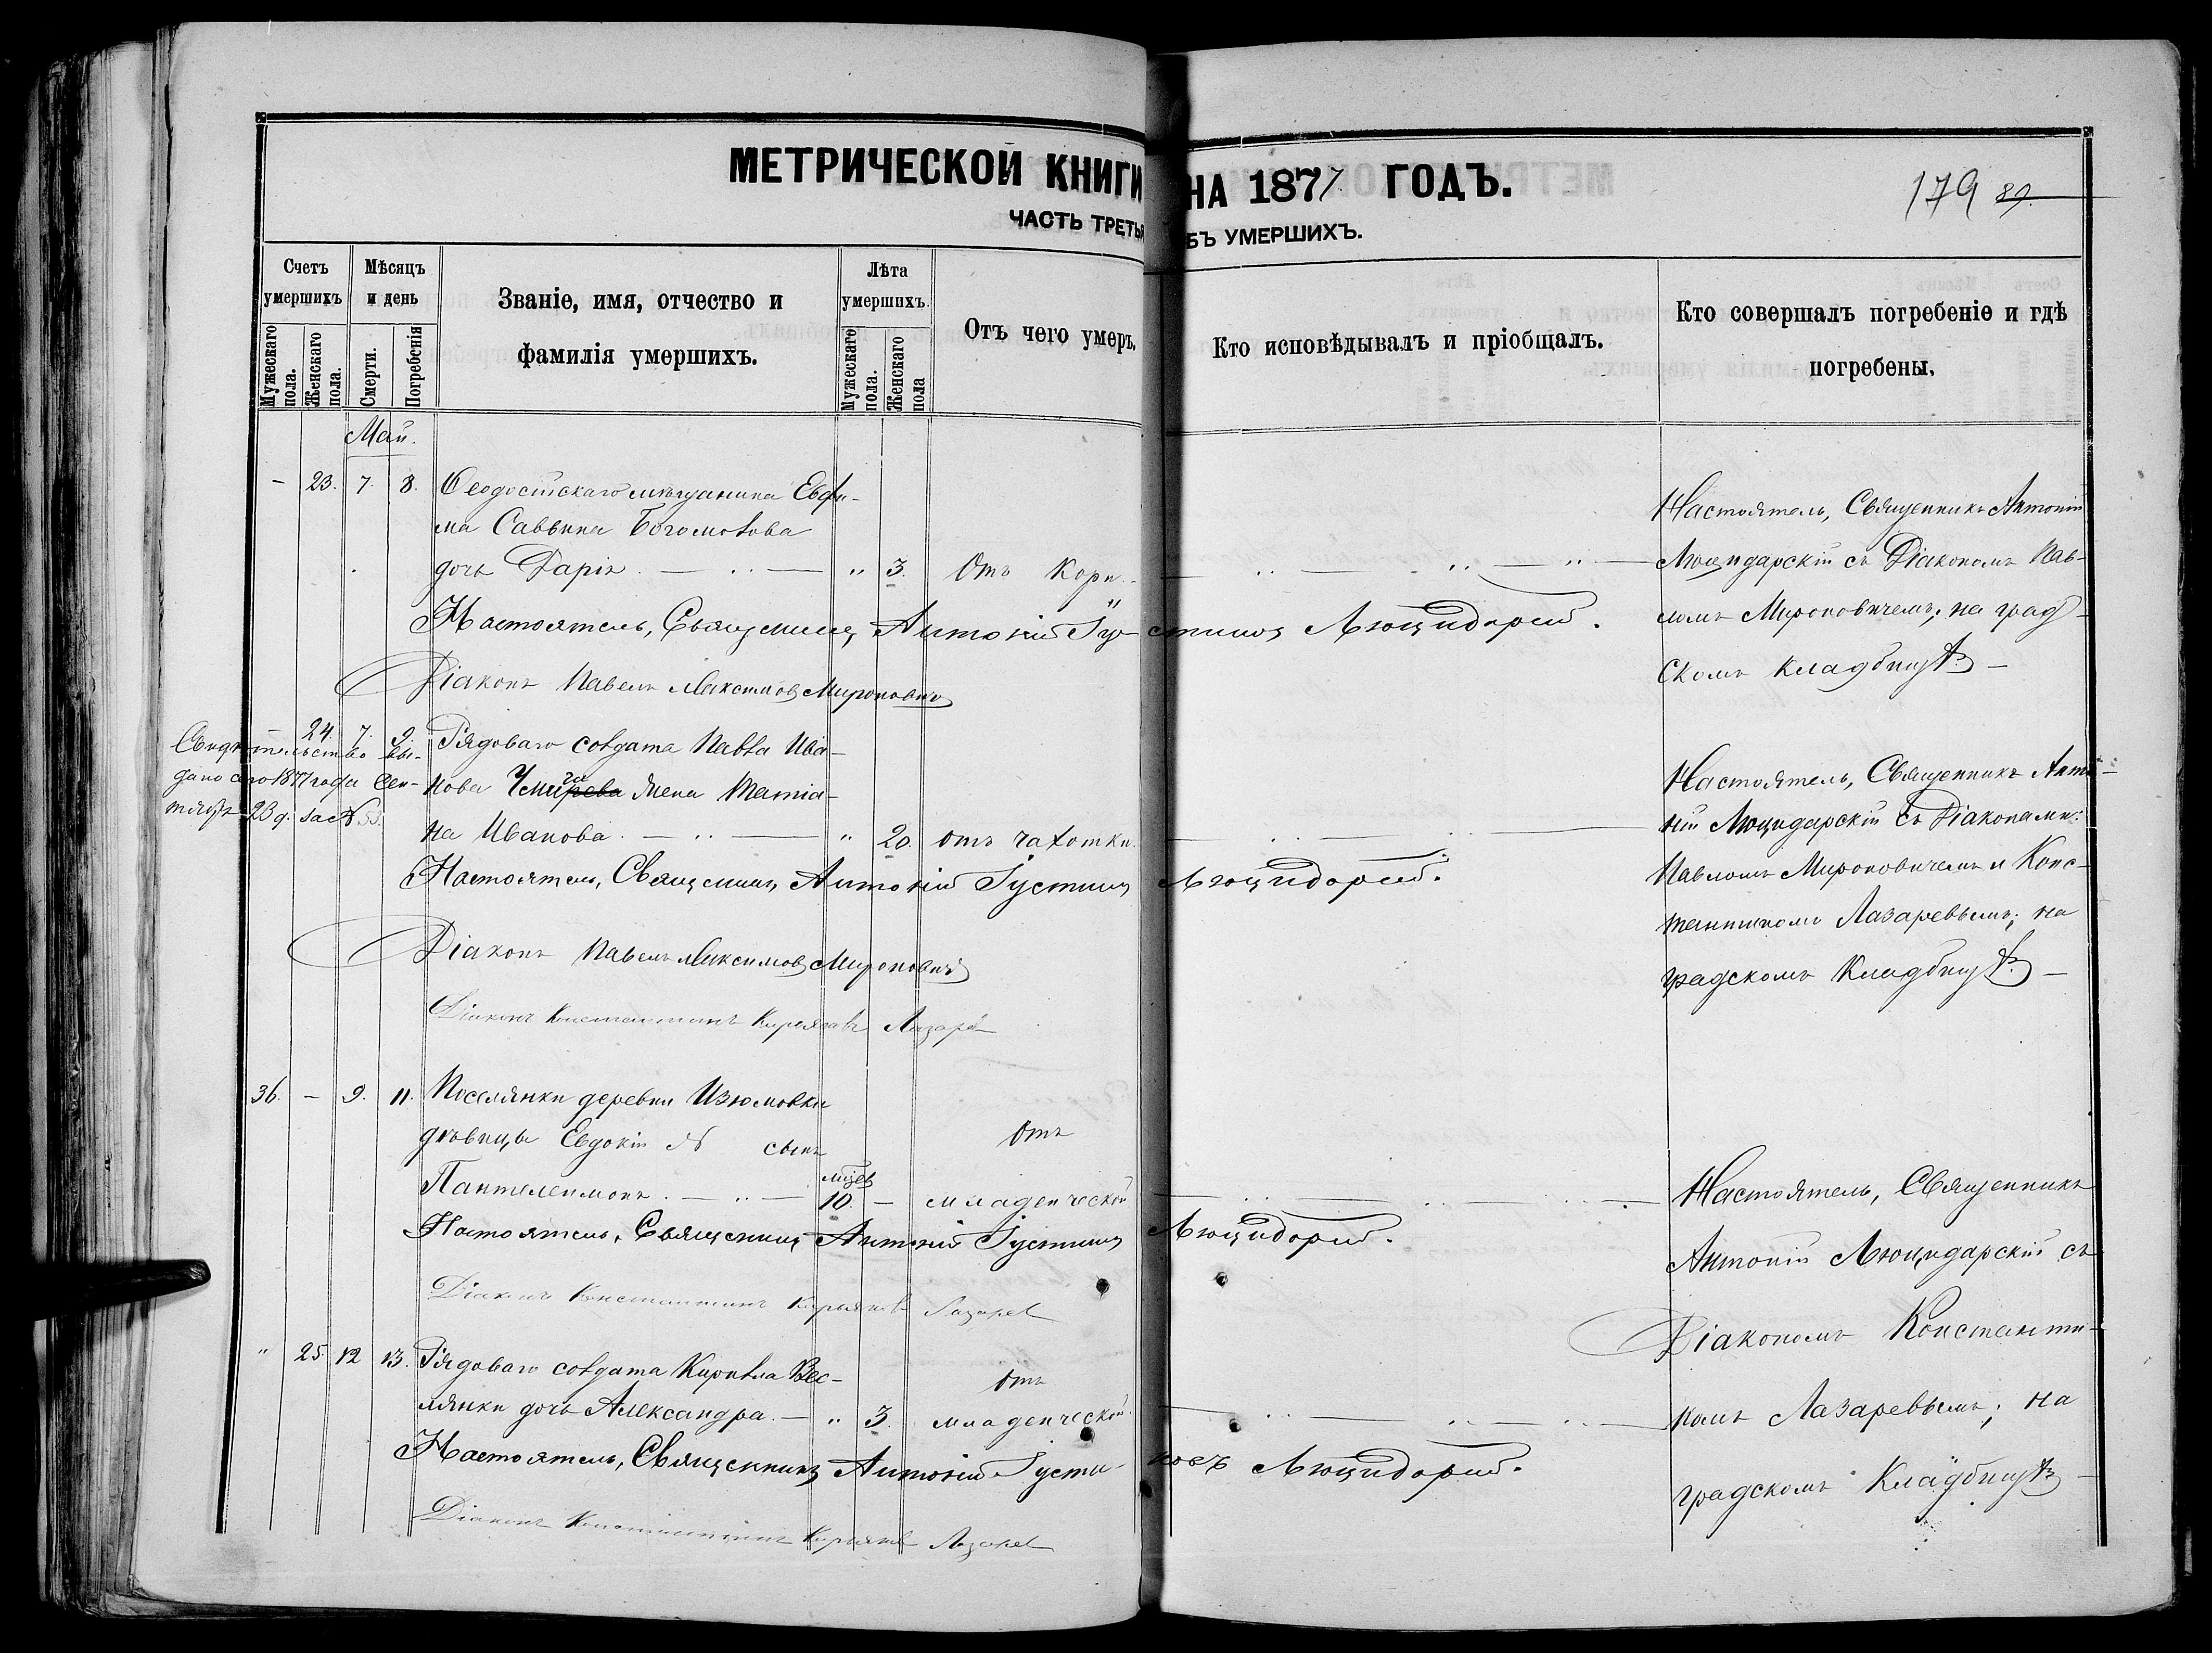 МЕТРИЧЕСКОЙ КНИГИ НА 1877 ГОДЪ.
179 89.
ЧАСТЬ ТРЕТЬ БЪ УМЕРШИХЪ.
Счетъ умершихъ
Мужескаго пола.
Женскаго пола.
Мѣсяцъ и день
Смерти.
Погребенія
Званіе, имя, отчество и
фамилія умершихъ.
Лѣта умершихъ.
Мужескаго пола.
Женскаго пола
Отъ чего умеръ.
Кто исповѣдывалъ и пріобщалъ.
Кто совершалъ погребеніе и гдѣ
погребены.
Май.
- 23. 7. 8. Ѳеодосійскаго мѣщанина Евфи-
ма Саввина Богомолова
дочь Дарія. " 3. Отъ кори.
Настоятель, Священникъ Антоній
Люцидарскій съ Діакономъ Пав-
ломъ Мироновичемъ; на град-
скомъ кладбищѣ
Настоятель, Священникъ Антоній Іустиновъ Люцидарскій.
Діаконъ Павелъ Максимовъ Мироновичъ
- 24. 7. 9. Рядоваго солдата Павла Ива-
нова жена Татіа-
на Иванова. " 20. отъ чахотки.
Свидѣтельство вы-
дано сего 1877 года Сен-
тября 23 д. за №
Настоятель, Священникъ Анто-
ній Люцидарскій съ Діаконами:
Павломъ Мироновичемъ и Конс-
тантиномъ Лазаревымъ; на
градскомъ Кладбищѣ
Настоятель, Священникъ Антоній Іустиновъ Люцидарскій.
Діаконъ Павелъ Максимовъ Мироновичъ
Діаконъ Константинъ Киріяковъ Лазаревъ
36. - 9. 11. Поселянки деревни Изюмовки
дѣвицы Евдокіи N сынъ
Пантелеимонъ. 10. - отъ младенческой
Настоятель, Священникъ Антоній Іустиновъ Люцидарскій.
Діаконъ Константинъ Киріяковъ Лазаревъ
Настоятель, Священникъ
Антоній Люцидарскій съ
Діакономъ Константи-
номъ Лазаревымъ; на
градскомъ Кладбищѣ
" 25. 12 13. Рядоваго солдата Кирилла Вес-
лянки дочь Александра. " 3. отъ младенческой
Настоятель, Священникъ Антоній Іустиновъ Люцидарскій.
Діаконъ Константинъ Киріяковъ Лазаревъ